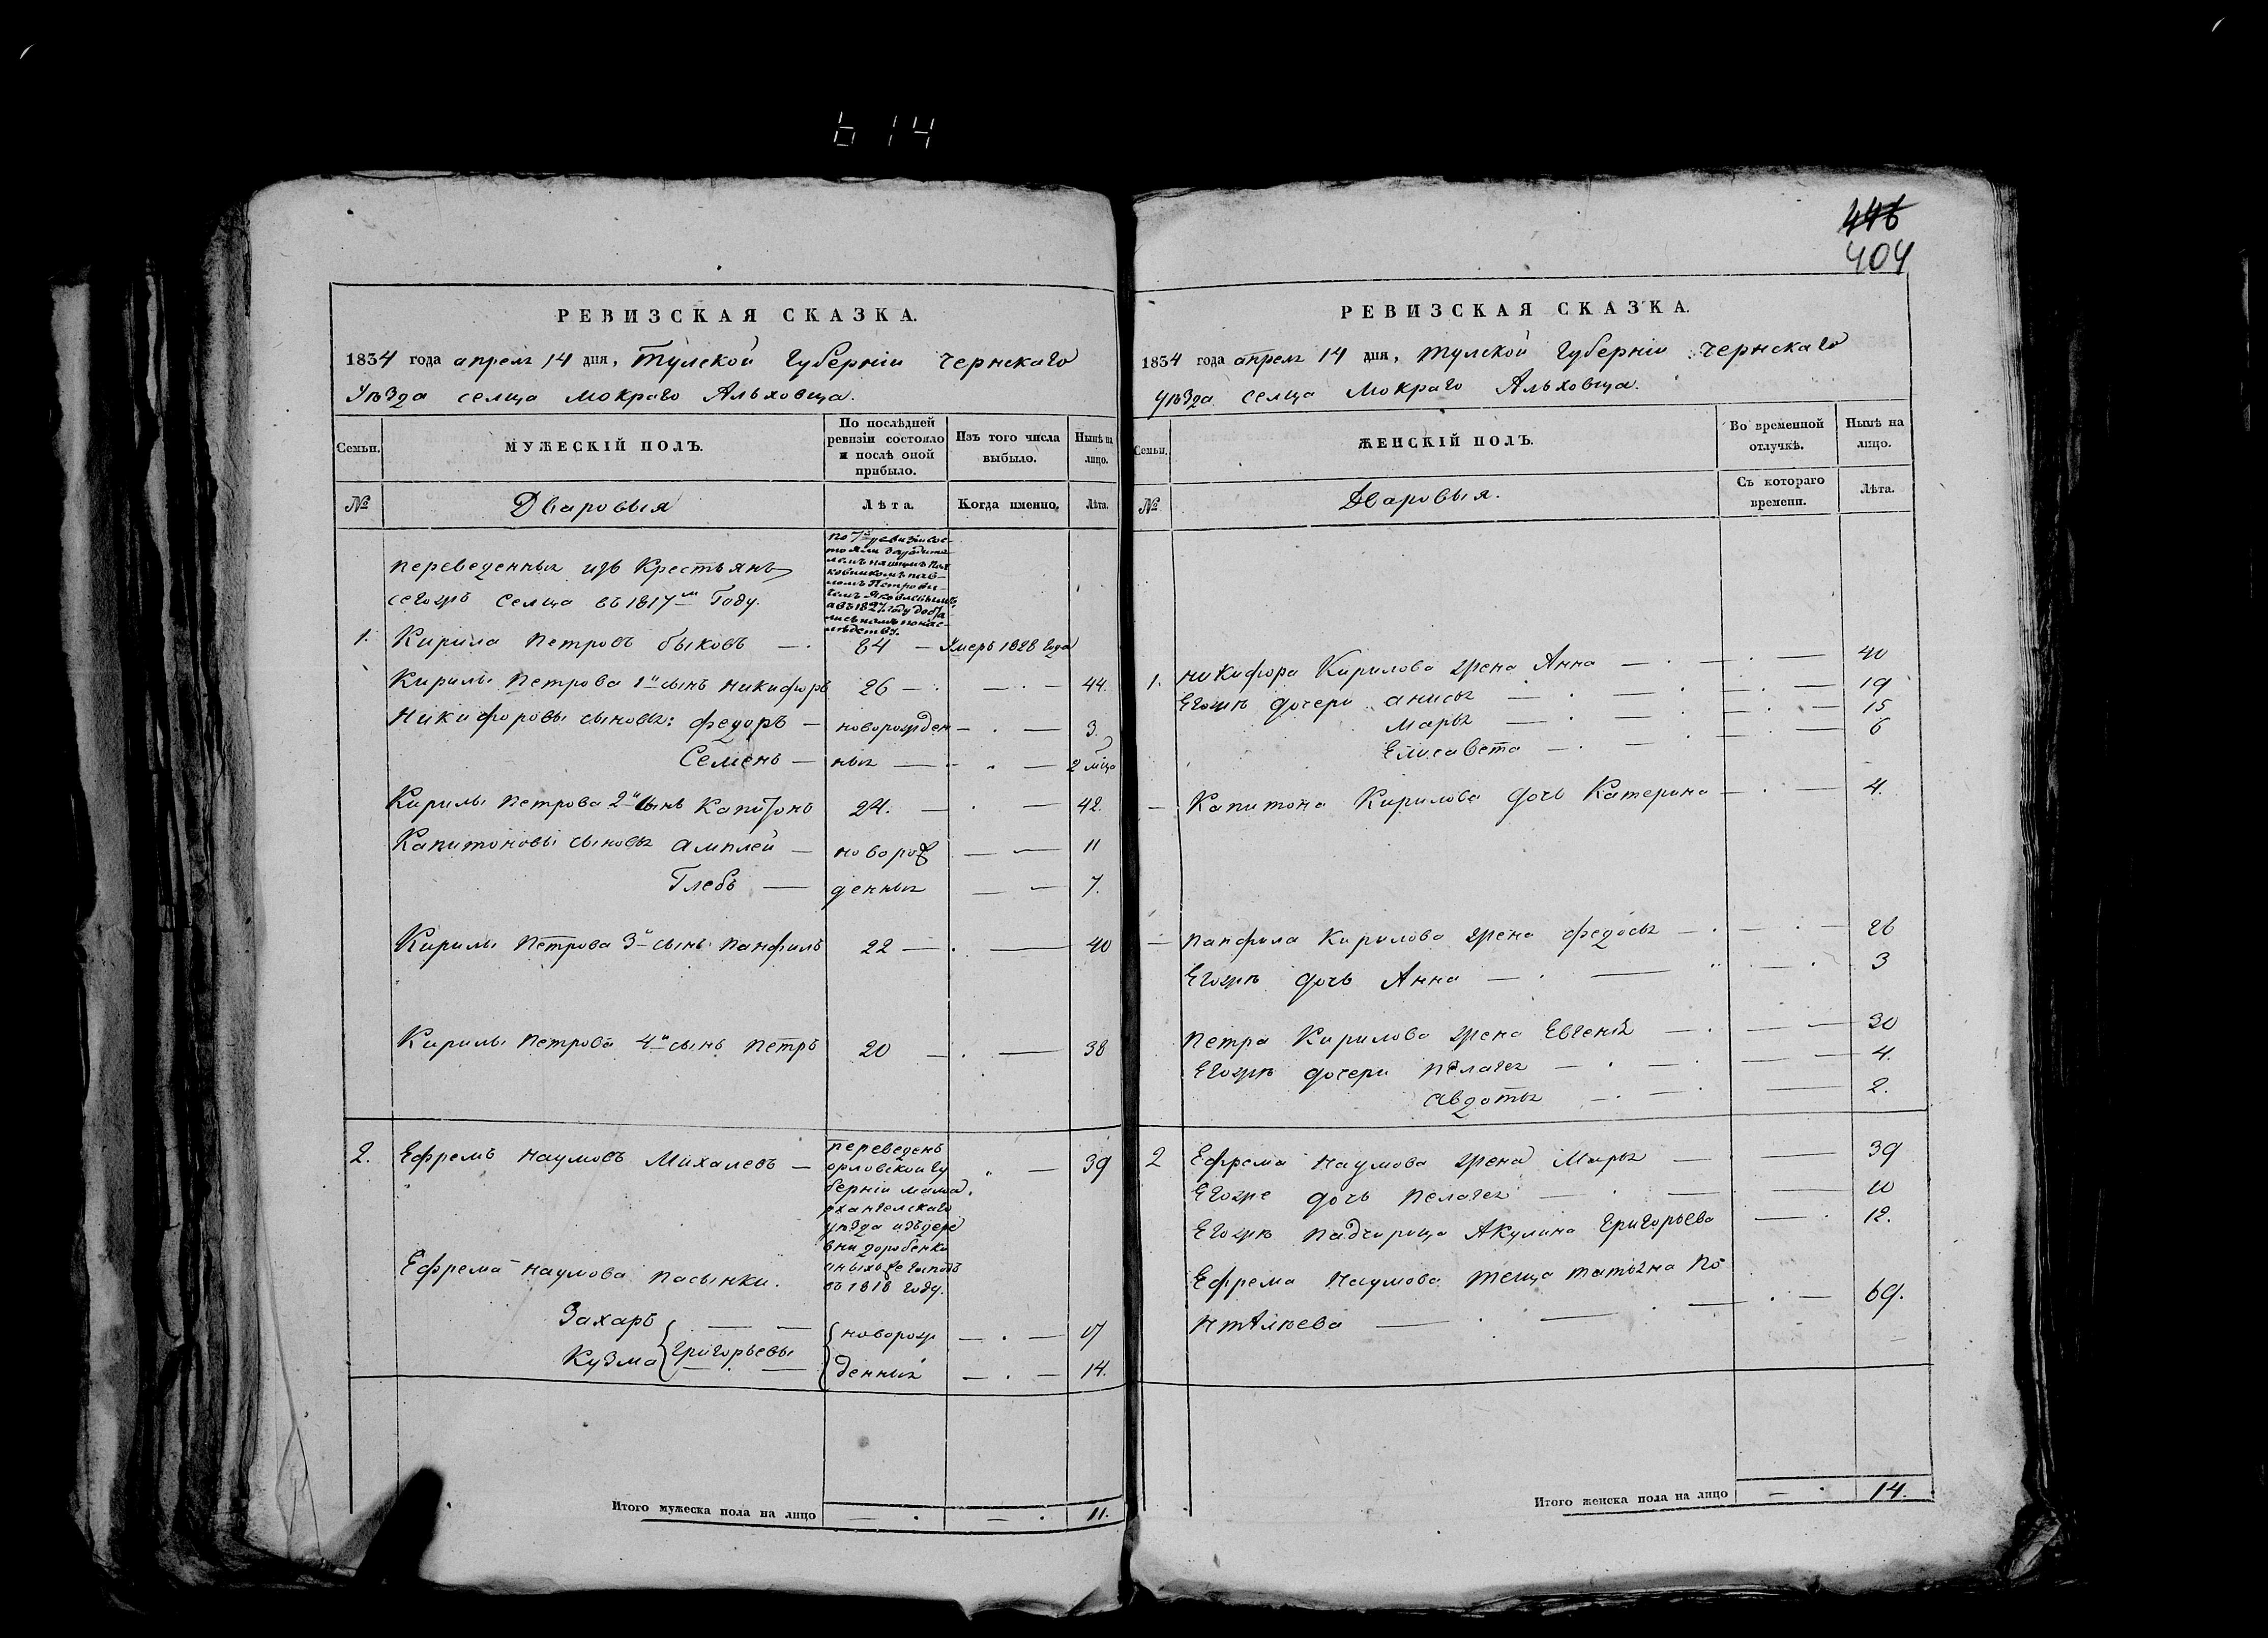 614
446
404
РЕВИЗСКАЯ СКАЗКА.
1834 года апреля 14 дня, Тулской Губерніи Чернскаго
Уѣзда селца Мокраго Альховца.
Семьи. МУЖЕСКІЙ ПОЛЪ. По послѣдней ревизіи состояло и послѣ оной прибыло. Изъ того числа выбыло. Нынѣ на лицо.
№ Дваровыя Лѣта. Когда именно. Лѣта.
переведенныя изъ Крестьянъ
сегожъ Селца въ 1817м Году.
по 7й ревизіи сос-
тояли
а въ 1827 году доста-
лись намъ по нас-
лѣдству.
1. Кирила Петровъ быковъ — 64 — Умеръ 1828 года
Кирилы Петрова 1й сынъ Никифоръ 26 — 44.
Никифоровы сыновья: федоръ — новорожден — 3.
Семенъ — ныя — 2 мцо
Кирилы Петрова 2й сынъ Капитонъ 24. — 42.
Капитоновы сыновья амплей — новорож — 11
Глебъ — денныя — 7.
Кирилы Петрова 3й сынъ Панфилъ 22 — 40
Кирилы Петрова 4й сынъ Петръ 20 — 38
2. Ефремъ Наумовъ Михалевъ — 39
переведенъ
орловской гу
берніи малоа
рхангелскаго
уѣзда изъ дере
вни
въ 1818 году.
Ефрема Наумова пасынки.
Захаръ — новорож — 17
Кузма Григорьевы — денныя — 14.
Итого мужеска пола на лицо — 11.
РЕВИЗСКАЯ СКАЗКА.
1834 года апреля 14 дня, Тулской Губерніи Чернскаго
уѣзда селца Мокраго Альховца.
Семьи. ЖЕНСКІЙ ПОЛЪ. Во временной отлучкѣ. Нынѣ на лицо.
№ Дваровыя. Съ котораго времени. Лѣта.
1. Никифора Кирилова жена Анна — 40
Егожъ дочери анисья — 19
Марья — 15
Елисавета — 6
— Капитона Кирилова дочь Катерина — 4.
— Панфила Кирилова жена федосья — 26
Егожъ дочь Анна — 3
Петра Кирилова жена Евгенія — 30
Егожъ дочери Пелагея — 4.
авдотья — 2.
2 Ефрема Наумова жена Марья — 39
Егоже дочь Пелагея — 10
Егожъ падчирица Акулина Григорьева — 12.
Ефрема Наумова теща татьяна По
нтѣлѣева — 69.
Итого женска пола на лицо — 14.